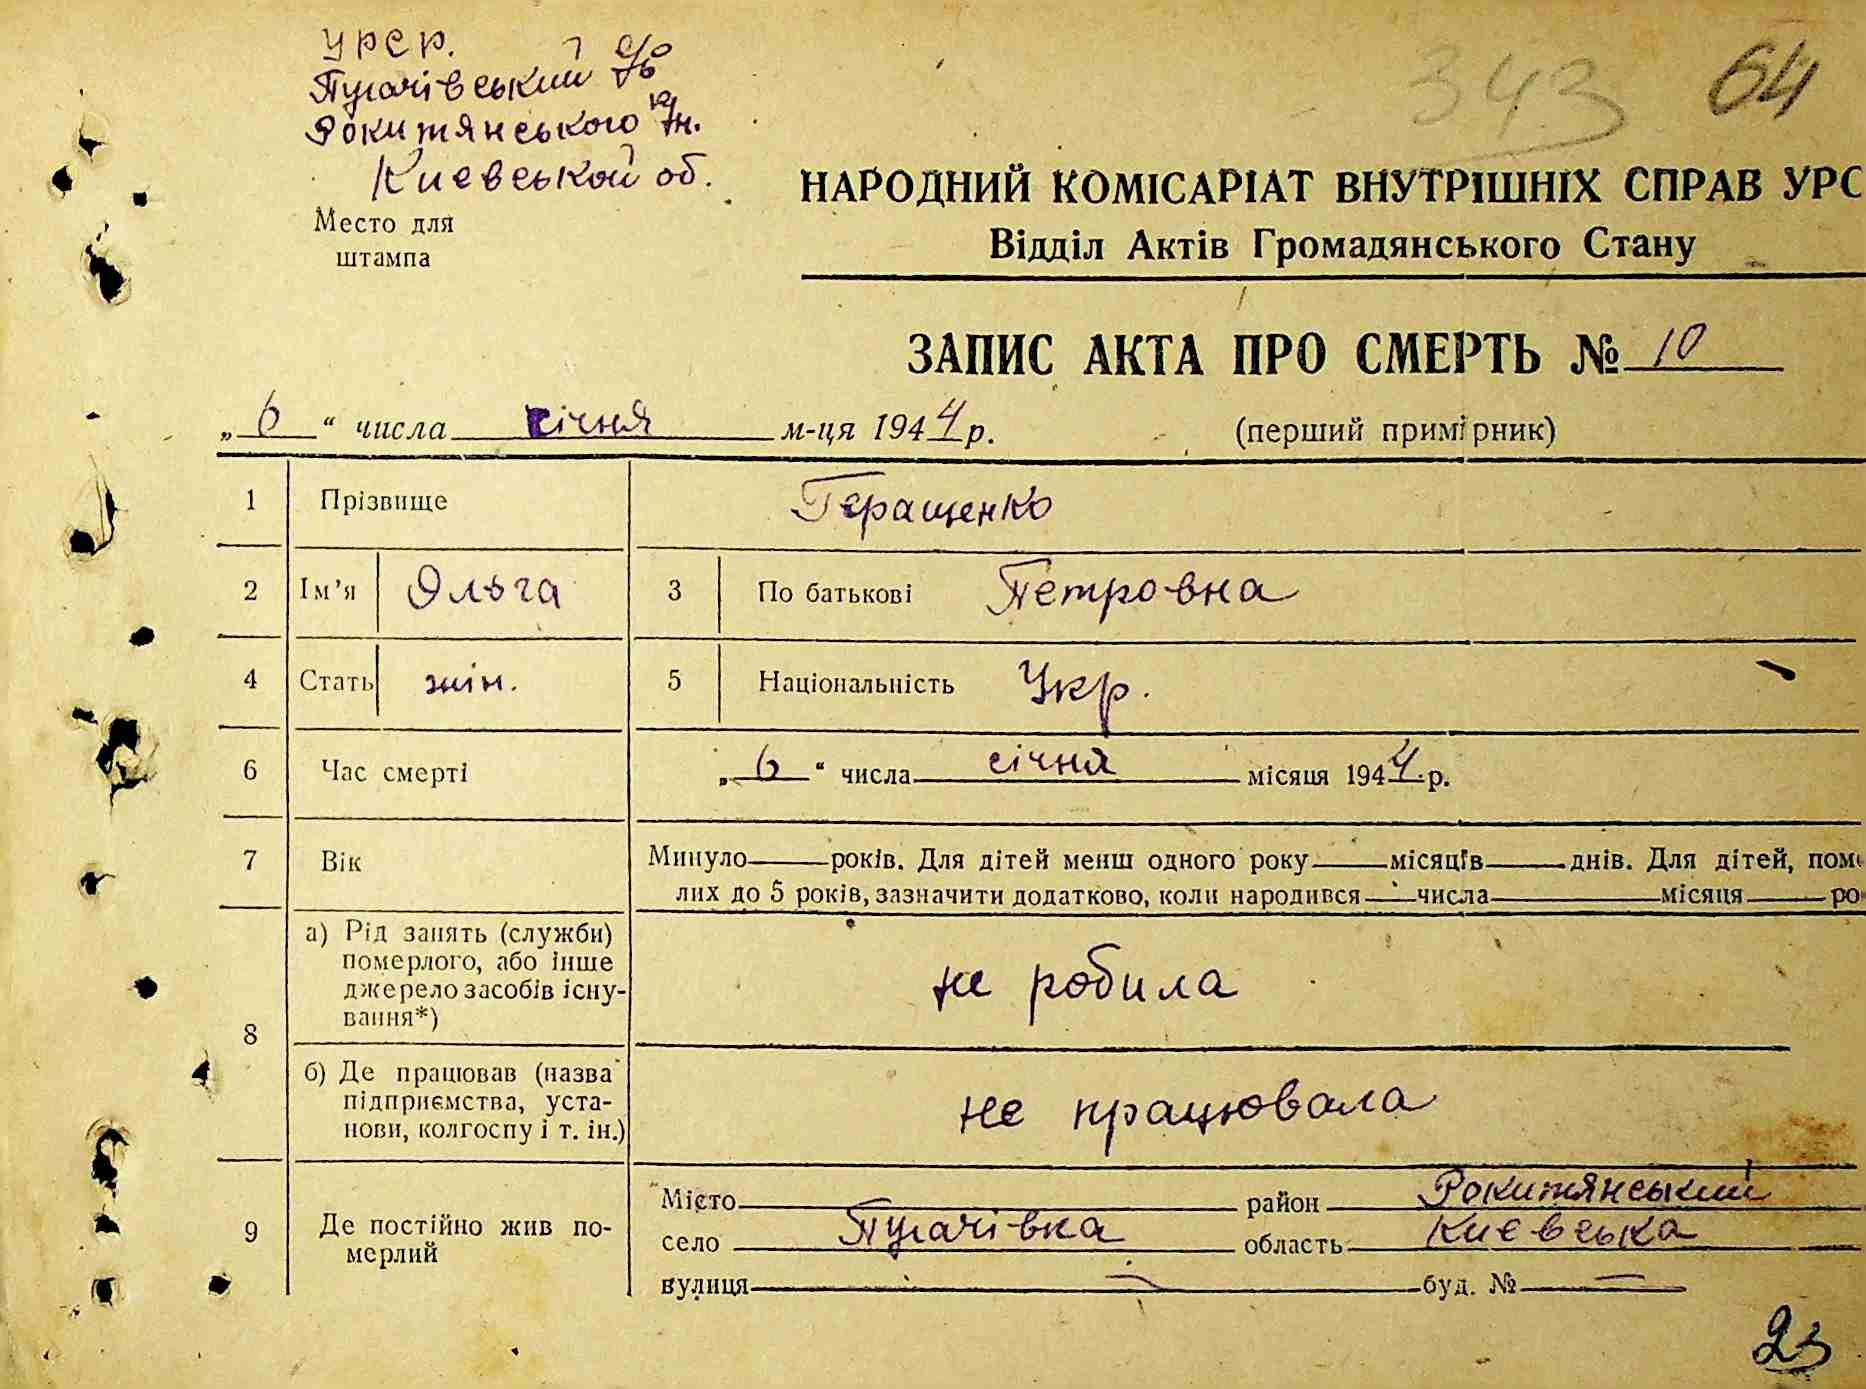 УРСР.
Пугачівський с/б
Рокитянського р/н.
Києвської об.
343 64
Место для
штампа
НАРОДНИЙ КОМІСАРІАТ ВНУТРІШНІХ СПРАВ УРС
Відділ Актів Громадянського Стану
ЗАПИС АКТА ПРО СМЕРТЬ № 10
„6“ числа січня м-ця 1944 р. (перший примірник)
1 Прізвище Геращенко
2 Ім'я Ольга 3 По батькові Петровна
4 Стать жін. 5 Національність Укр.
6 Час смерті „6“ числа січня місяця 1944 р.
7 Вік Минуло років. Для дітей менш одного року місяців днів. Для дітей, пом
лих до 5 років, зазначити додатково, коли народився числа місяця ро
8 а) Рід занять (служби)
померлого, або інше
джерело засобів існу-
вання*)
не робила
б) Де працював (назва
підприємства, уста-
нови, колгоспу і т. ін.)
не працювала
9 Де постійно жив по-
мерлий
Місто район Рокитянський
село Пугачівка область Києвська
вулиця — буд. № —
23